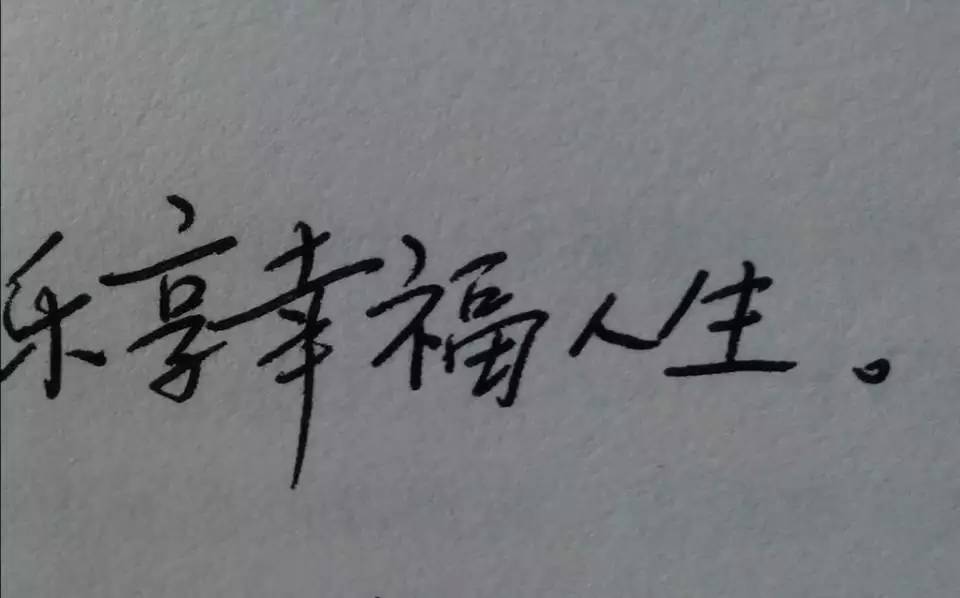 乐享幸福人生。